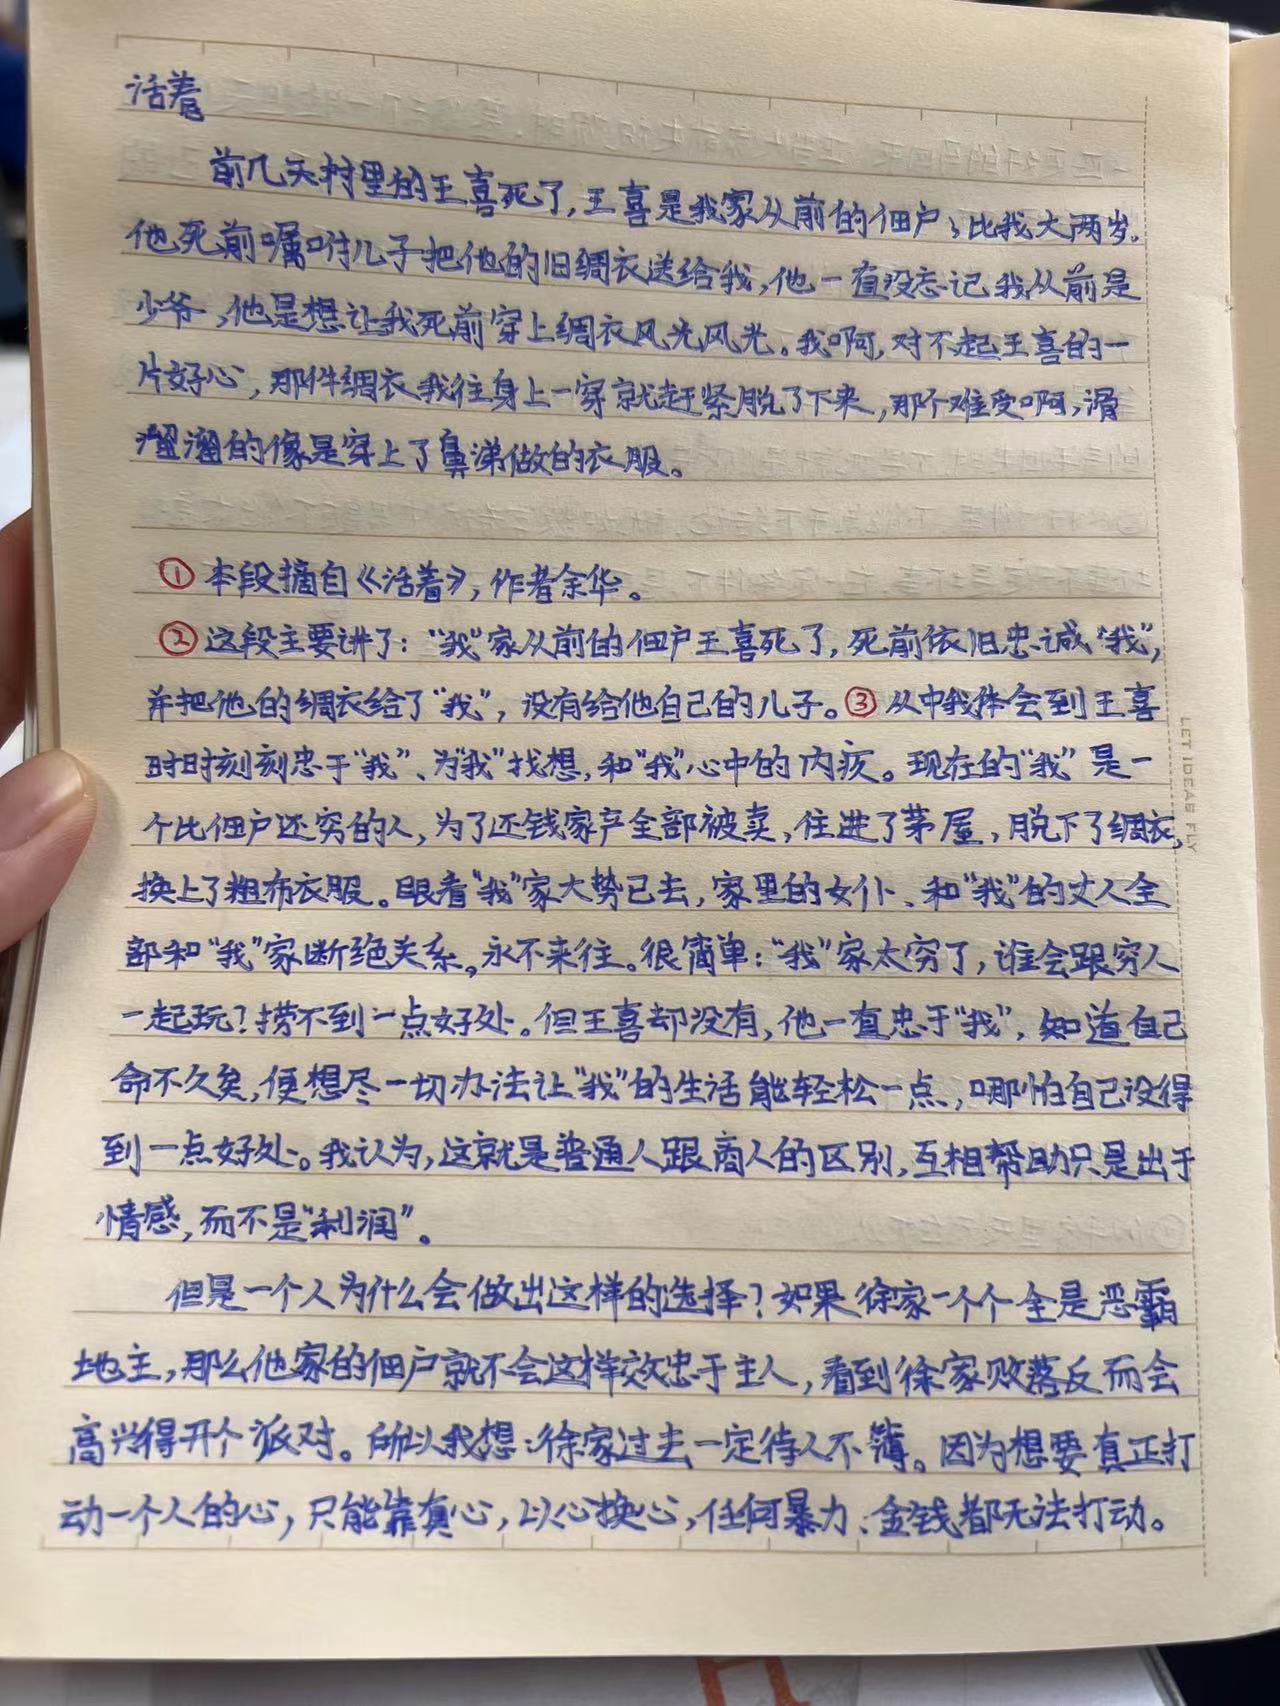 活着
前几天村里的王喜死了，王喜是我家从前的佃户，比我大两岁。
他死前嘱咐儿子把他的旧绸衣送给我，他一直没忘记我从前是
少爷，他是想让我死前穿上绸衣风光风光。我啊，对不起王喜的一
片好心，那件绸衣我往身上一穿就赶紧脱了下来，那个难受啊，滑
溜溜的像是穿上了鼻涕做的衣服。
①本段摘自《活着》，作者余华。
②这段主要讲了：“我”家从前的佃户王喜死了，死前依旧忠诚“我”，
并把他的绸衣给了“我”，没有给他自己的儿子。③从中我体会到王喜
时时刻刻忠于“我”、为“我”找想，和“我”心中的内疚。现在的“我”是一
个比佃户还穷的人，为了还钱家产全部被卖，住进了茅屋，脱下了绸衣，
换上了粗布衣服。眼看“我”家大势已去，家里的女仆、和“我”的丈人全
部和“我”家断绝关系。永不来往。很简单：“我”家太穷了，谁会跟穷人
一起玩？捞不到一点好处。但王喜却没有，他一直忠于“我”，知道自己
命不久矣，便想尽一切办法让“我”的生活能轻松一点，哪怕自己没得
到一点好处。我认为，这就是普通人跟商人的区别，互相帮助只是出于
情感，而不是“利润”。
但是一个人为什么会做出这样的选择？如果徐家一个个全是恶霸
地主，那么他家的佃户就不会这样效忠于主人，看到徐家败落反而会
高兴得开个派对。所以我想：徐家过去一定待人不薄。因为想要真正打
动一个人的心，只能靠真心，以心换心，任何暴力、金钱都无法打动。
LET IDEAS FLY